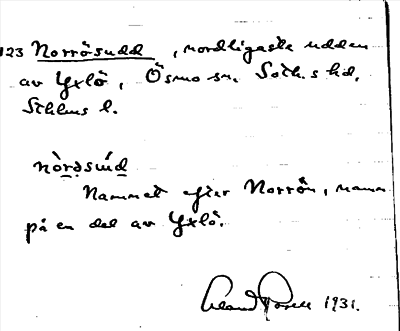 123 Norrösudd, nordligaste udden
av Yxlö, Ösmo sn. Soth.s hd,
Sthlms l.
nòrǝsùd
Namnet efter Norrön, namn
på en del av Yxlö.
1931.